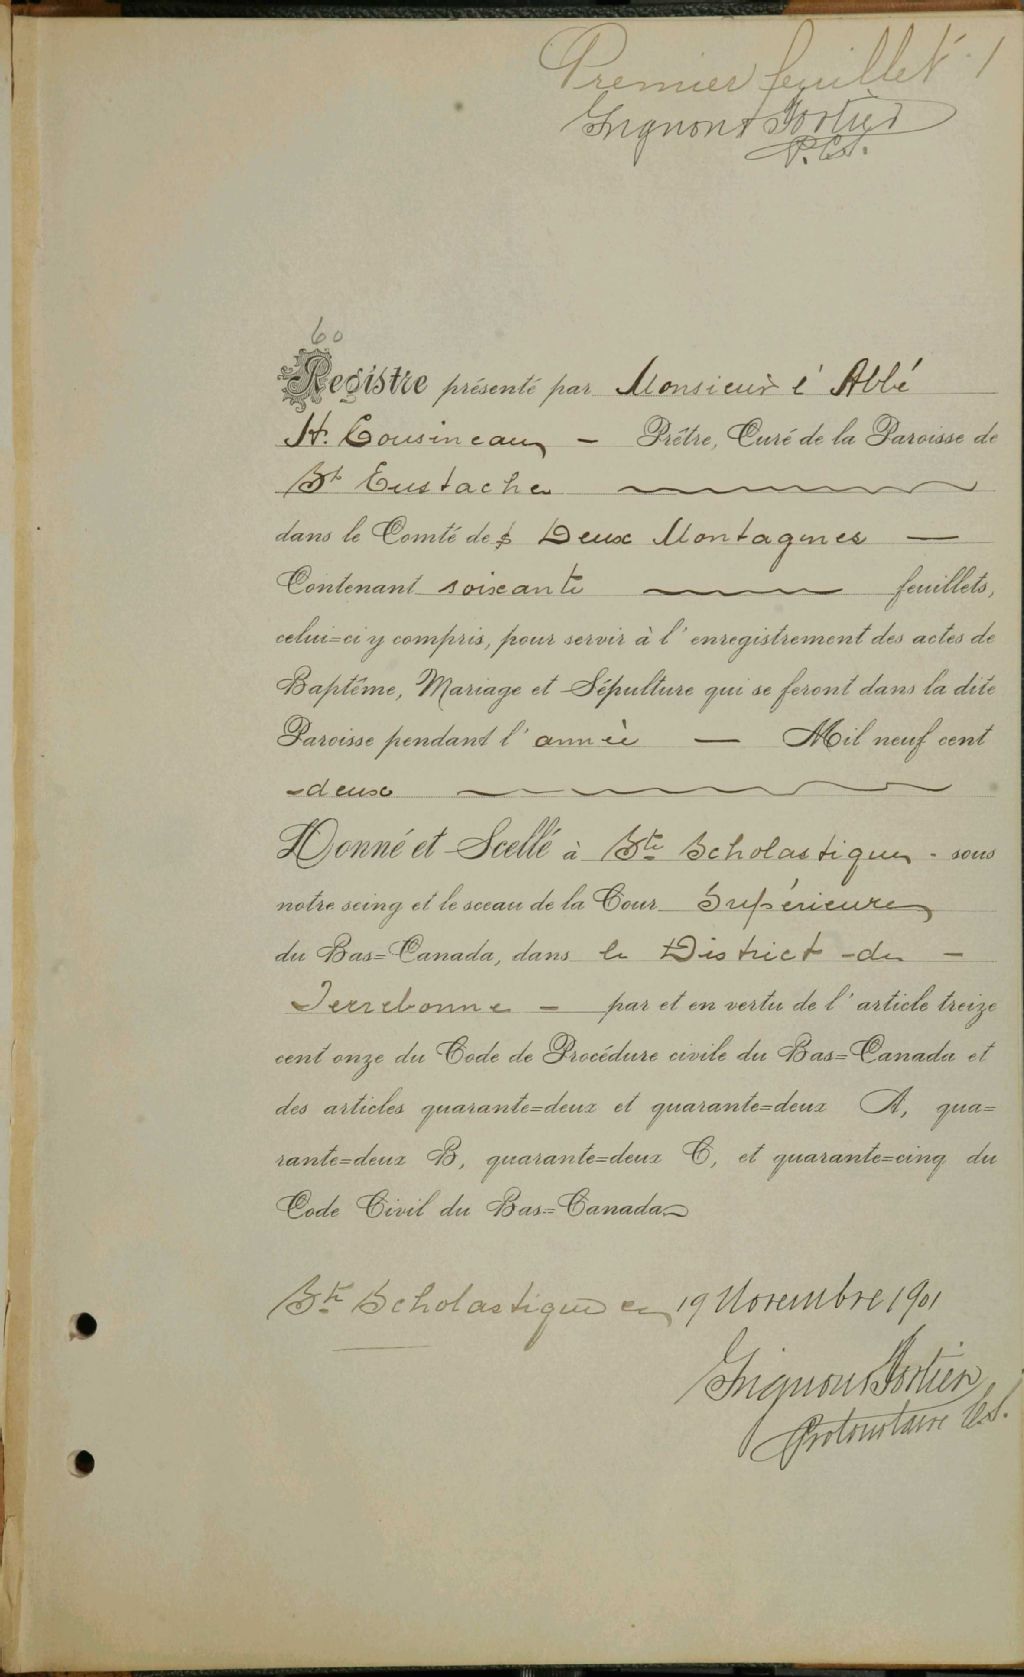 Premier feuillet 1
Grignon & Fortier
P. C. S.
60
Registre présenté par Monsieur l'Abbé
H. Cousineau — Prêtre, Curé de la Paroisse de
St Eustache
dans le Comté des Deux Montagnes —
Contenant soixante feuillets,
celui=ci y compris, pour servir à l'enregistrement des actes de
Baptême, Mariage et Sépulture qui se feront dans la dite
Paroisse pendant l'année — Mil neuf cent
-deux
Donné et Scellé à Ste Scholastique - sous
notre seing et le sceau de la Cour Supérieure
du Bas=Canada, dans le District -de -
Terrebonne — par et en vertu de l'article treize
cent onze du Code de Procédure civile du Bas=Canada et
des articles quarante=deux et quarante=deux A, qua=
rante=deux B, quarante=deux C, et quarante=cinq du
Code Civil du Bas=Canada
Ste Scholastique ce 19 Novembre 1901
Grignon & Fortier
Protonotaire C.S.